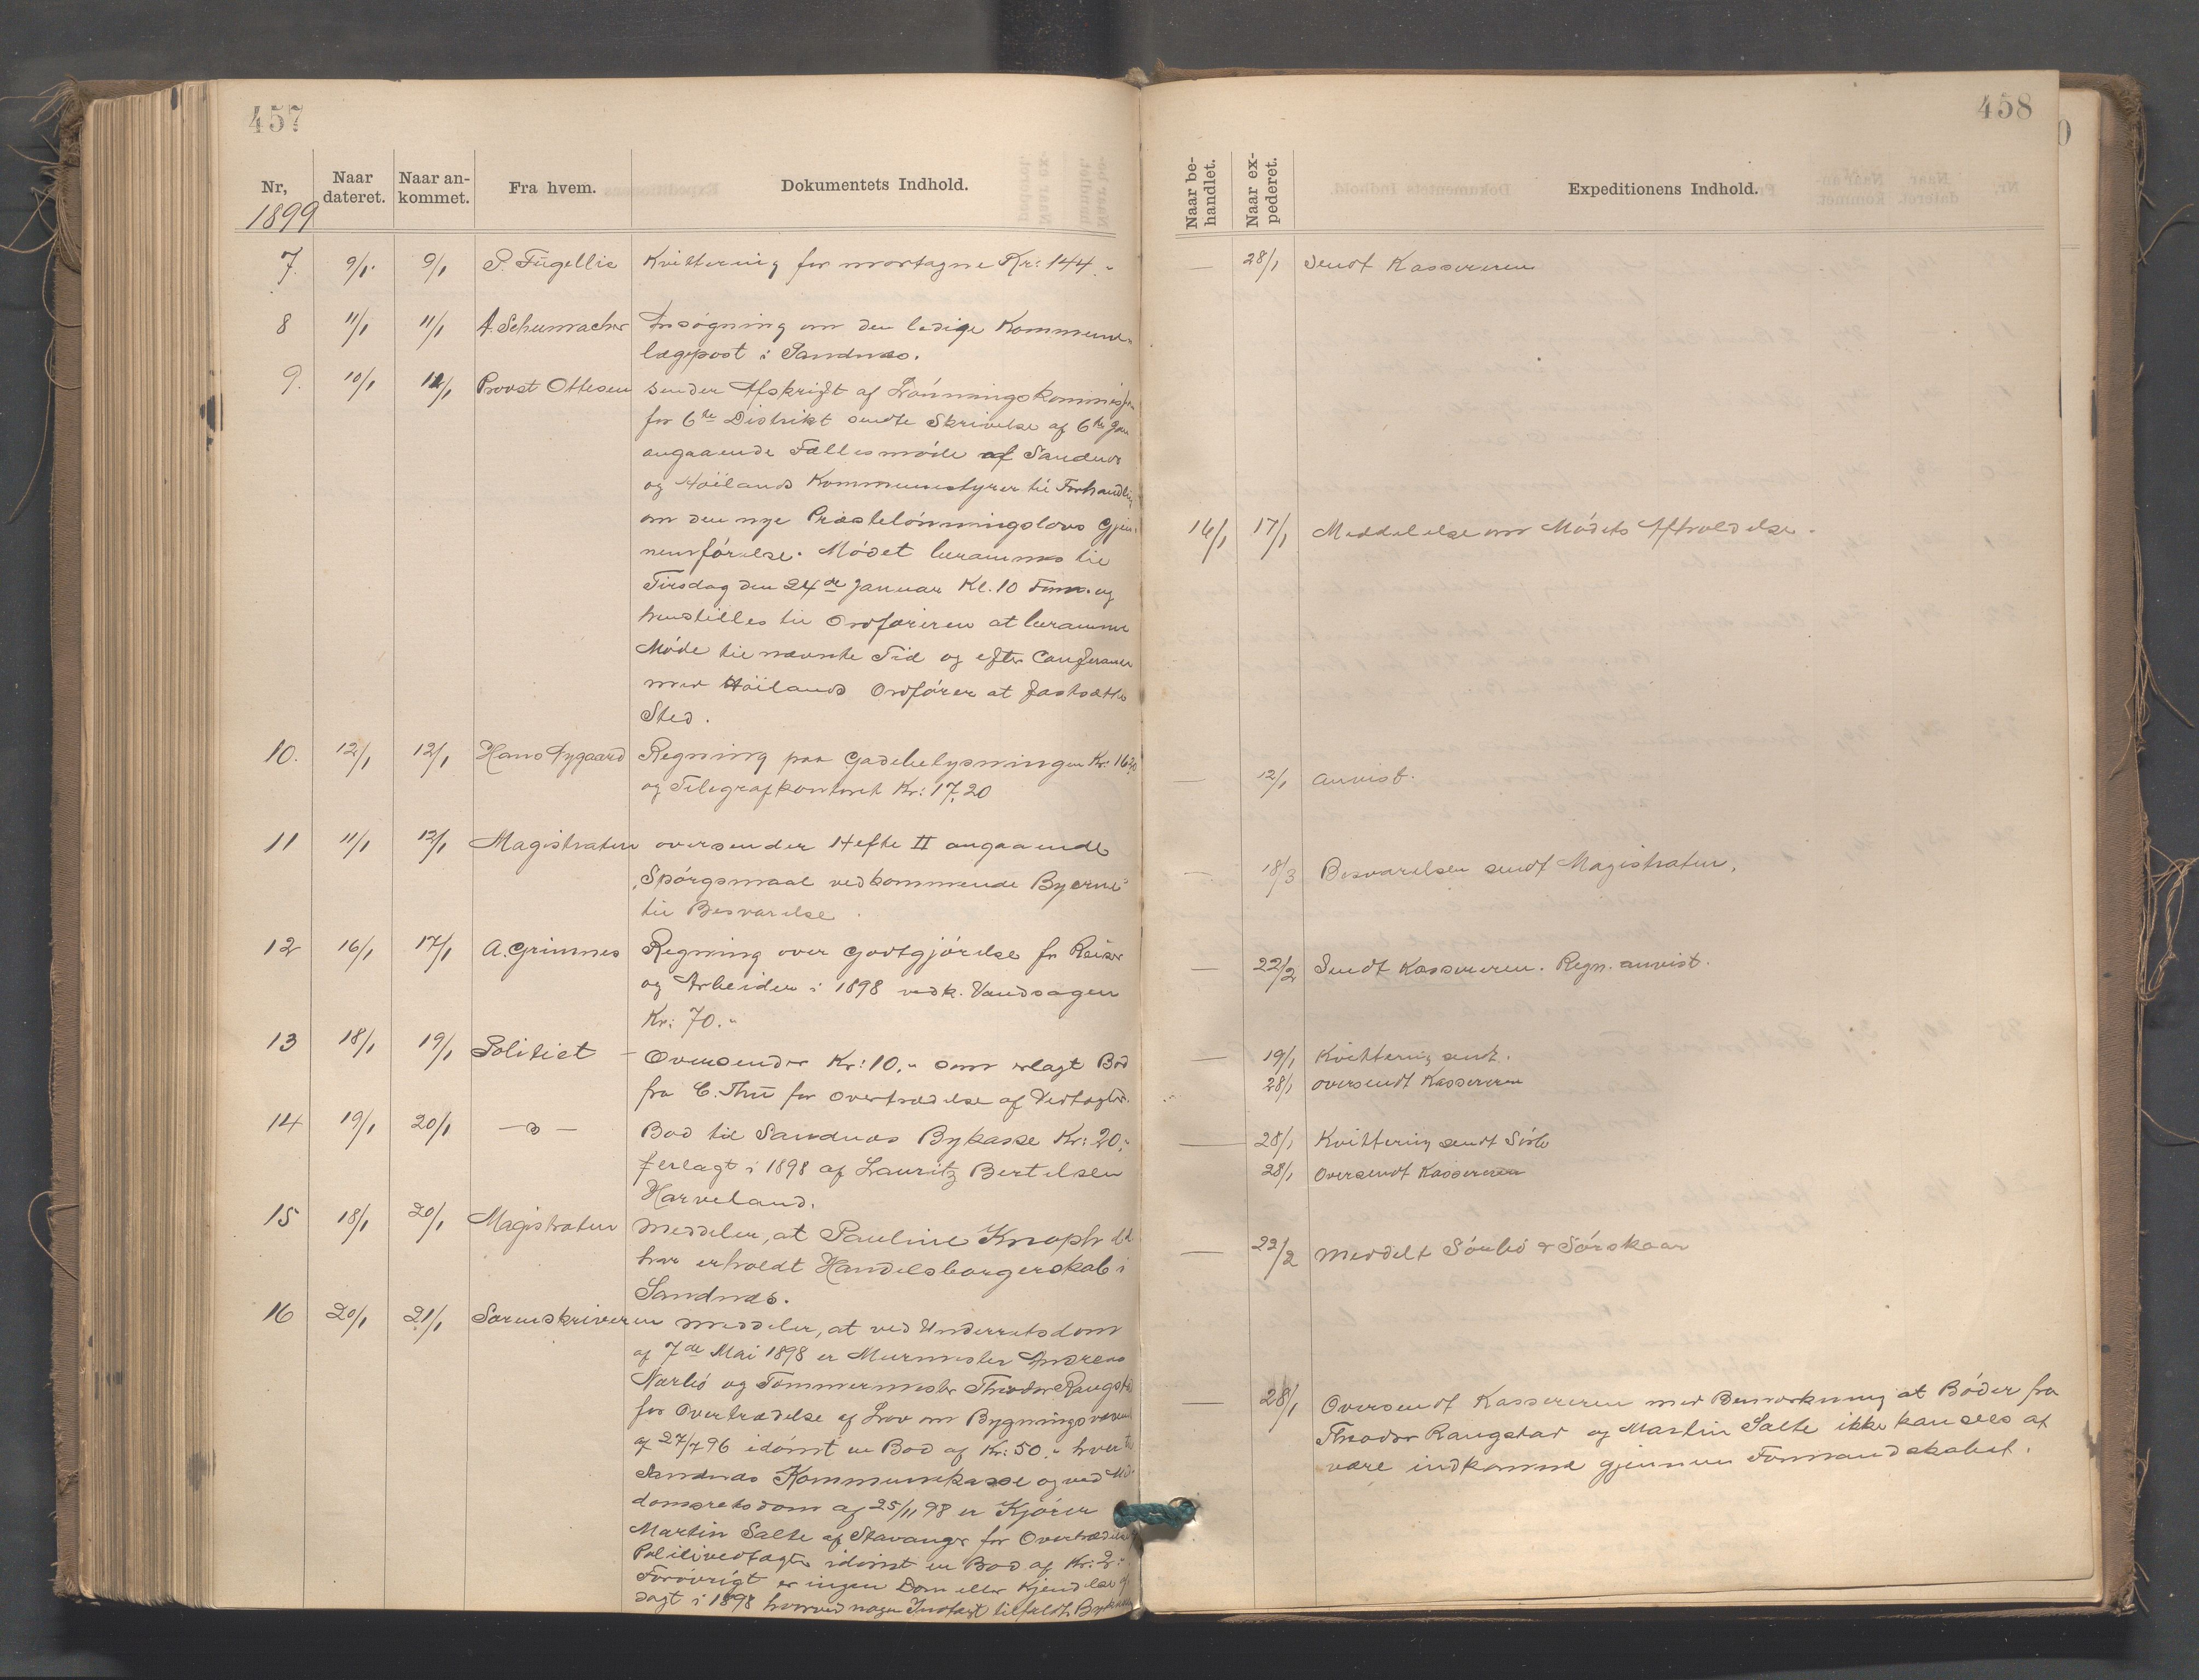 457
Nr,
Naar dateret.
Naar ankommet.
Fra hvem.
Dokumentets Indhold.
1899
7. 9/1. 9/1 P. Fügellie Kvittering for mortagne Kr: 144."
8 11/1 11/1 A. Schumacher Ansøgning om den ledige Kommune-
lægepost i Sandnæs.
9. 10/1 12/1 Provst Ottesen sender Afskrift af Lønningskommisj.
for 6te Distrikt sendte Skrivelse af 6te Jan
angaaende Fællesmøde af Sandnæs
og Höilands Kommunestyrer til Forhandling
om den nye Præstelønningslovs Gjen-
nemførelse. Mödet berammes til
Tirsdag den 24de Januar Kl. 10 Form. og
henstilles til Ordføreren at beramme
Møde til nævnte Tid og efter Conferance
med Höilands Ordfører at fastsætte
Sted.
10. 12/1 12/1 Hans Nygaard Regning paa Gadebelysningen Kr: 16,20
og Telegrafkontoret Kr: 17,20
11 11/1 12/1 Magistraten oversender Hefte II angaaende
"Spörgsmaal vedkommende Byerne"
til Besvarelse.
12 16/1 17/1 A. Grimnes Regning over Godtgjörelse for Reiser
og Arbeider i 1898 vedk. Vandsagen
Kr: 70."
13 18/1 19/1 Politiet Oversender Kr: 10." som erlagt Bod
fra C. Thu for Overtrædelse af Vedtægter.
14 19/1 20/1 —"— Bod til Sandnæs Bykasse Kr: 20."
erlagt i 1898 af Lauritz Bertelsen
Harveland.
15 18/1 20/1 Magistraten Meddeler, at Pauline Knoph
har erholdt Handelsborgerskab i
Sandnæs.
16 20/1 21/1 Sorenskriveren meddeler, at ved Underretsdom
af 7de Mai 1898 er Murmester Andreas
Nærbö og Tømmermester Theodor Raugstad
for Overtrædelse af Lov om Bygningsvæsen
af 27/7 96 idömt en Bod af Kr: 50." hver til
Sandnæs Kommunekasse og ved Med-
domsretsdom af 25/11 98 er Kjører
Martin Salte af Stavanger for Overtrædelse af
Politivedtægter idömt en Bod af Kr: 2."
Forövrigt er ingen Dom eller Kjendelse af-
sagt i 1898 hvorved nogen Indtægt tilfaldt Bykassen
458
Naar behandlet.
Naar expederet.
Expeditionens Indhold.
— 28/1 Sendt Kassereren
16/1 17/1 Meddelelse om Mödets Afholdelse.
— 12/1 anvist.
— 18/3 Besvarelsen sendt Magistraten.
— 22/2 Sendt Kassereren. Regn. anvist.
— 19/1 Kvittering sendt.
28/1 oversendt Kassereren
— 28/1 Kvittering sendt Sörbö
28/1 Oversendt Kassereren
— 22/2 Meddelt Sörbö & Sörskaar
— 28/1 Oversendt Kassereren med Bemærkning at Böder fra
Theodor Raugstad og Martin Salte ikke kan sees at
være indkomne gjennem Formandskabet.